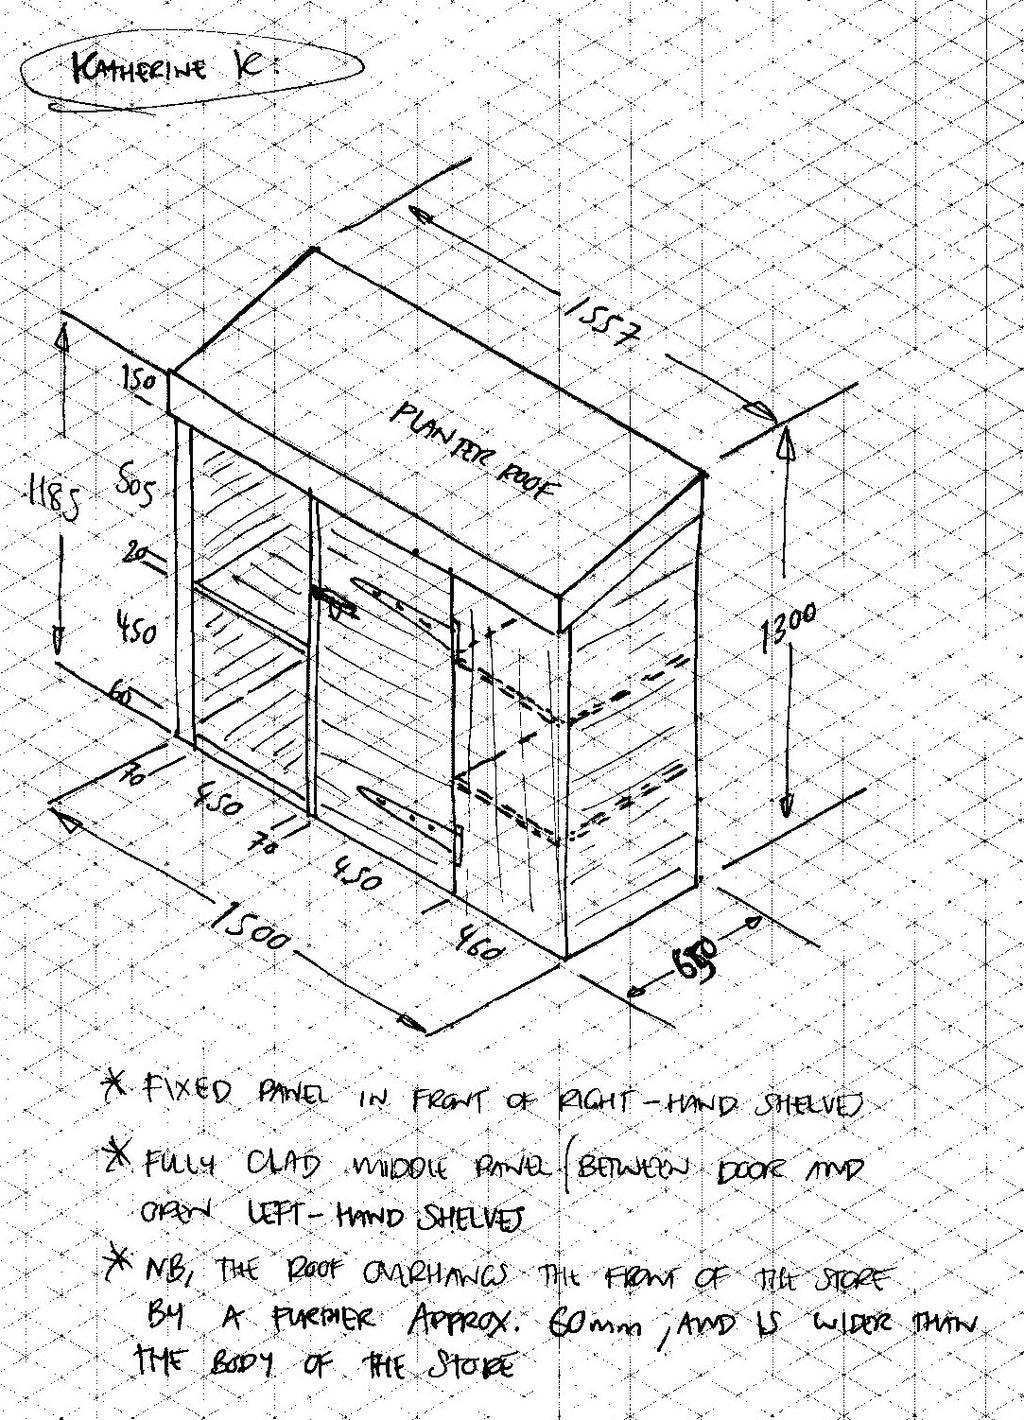 KATHERINE K.
1557
150
PLANTER ROOF
1185
505
20
1300
450
60
70
450
70
450
1500
460
650
* FIXED PANEL IN FRONT OF RIGHT-HAND SHELVES
* FULLY CLAD MIDDLE PANEL (BETWEEN DOOR AND
OPEN LEFT-HAND SHELVES
* NB, THE ROOF OVERHANGS THE FRONT OF THE STORE
BY A FURTHER APPROX. 60mm, AND IS WIDER THAN
THE BODY OF THE STORE